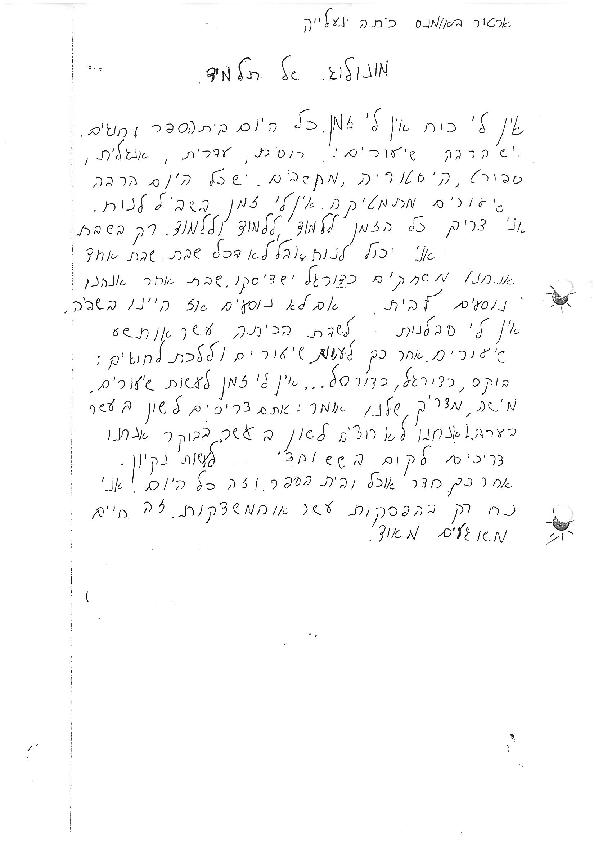 ארטור באוומנס כיתה ועלייה
מונולוג של תלמיד.
אין לי כוח אין לי זמן. כל היום בית הספר וחוגים.
יש הרבה שיעורים: רוסית, עברית, אנגלית,
ספורט, היסטוריה, מחשבים. יש כל היום הרבה
שיעורים מתמטיקה. אין לי זמן בשביל לנוח.
אני צריך כל הזמן ללמוד, ללמוד וללמוד. רק בשבת
אני יכול לנוח, אבל לא בכל שבת. שבת אחד
אנחנו משחקים כדורגל יש דיסקו, שבת אחר אנחנו
נוסעים לבית. אם לא נוסעים אז היינו בשדה.
אין לי סבלנות לשבת הכיתה עשר או תשע
שיעורים. אחר כך לעשות שיעורים וללכת לחוגים:
בוקס, כדורגל, כדורסל... אין לי זמן לעשות שיעורים.
מישה, מדריך שלנו אמר: אתם צריכים לישון בעשר
בערב! אנחנו לא רוצים לשון בעשר. בבוקר אנחנו
צריכים לקום בשש וחצי לעשות נקיון.
אחר כך חדר אוכל ובית הספר. וזה כל היום! אני
נח רק בהפסקות עשר או חמש דקות. זה חיים
משוגעים מאוד.